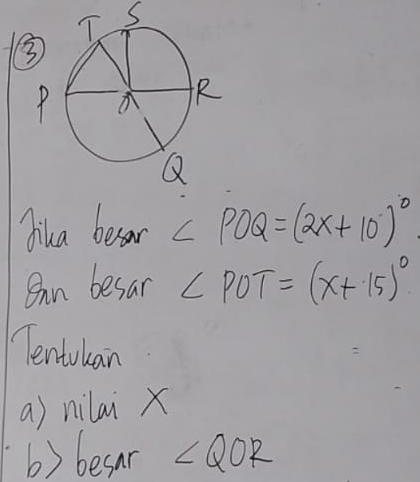 ③
T S
P O R
Q
Jika besar ∠ POQ = (2x + 10)°.
Dan besar ∠ POT = (x + 15)°.
Tentukan
a) nilai X
b) besar ∠QOR